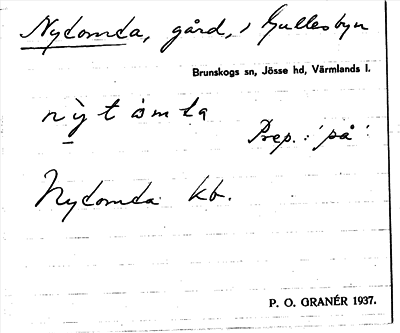 Nytomta, gård, i Gullesbyn
Brunskogs sn, Jösse hd, Värmlands l.
nỳtòmta
Prep.: 'på'.
Nytomta kb.
P. O. GRANÉR 1937.